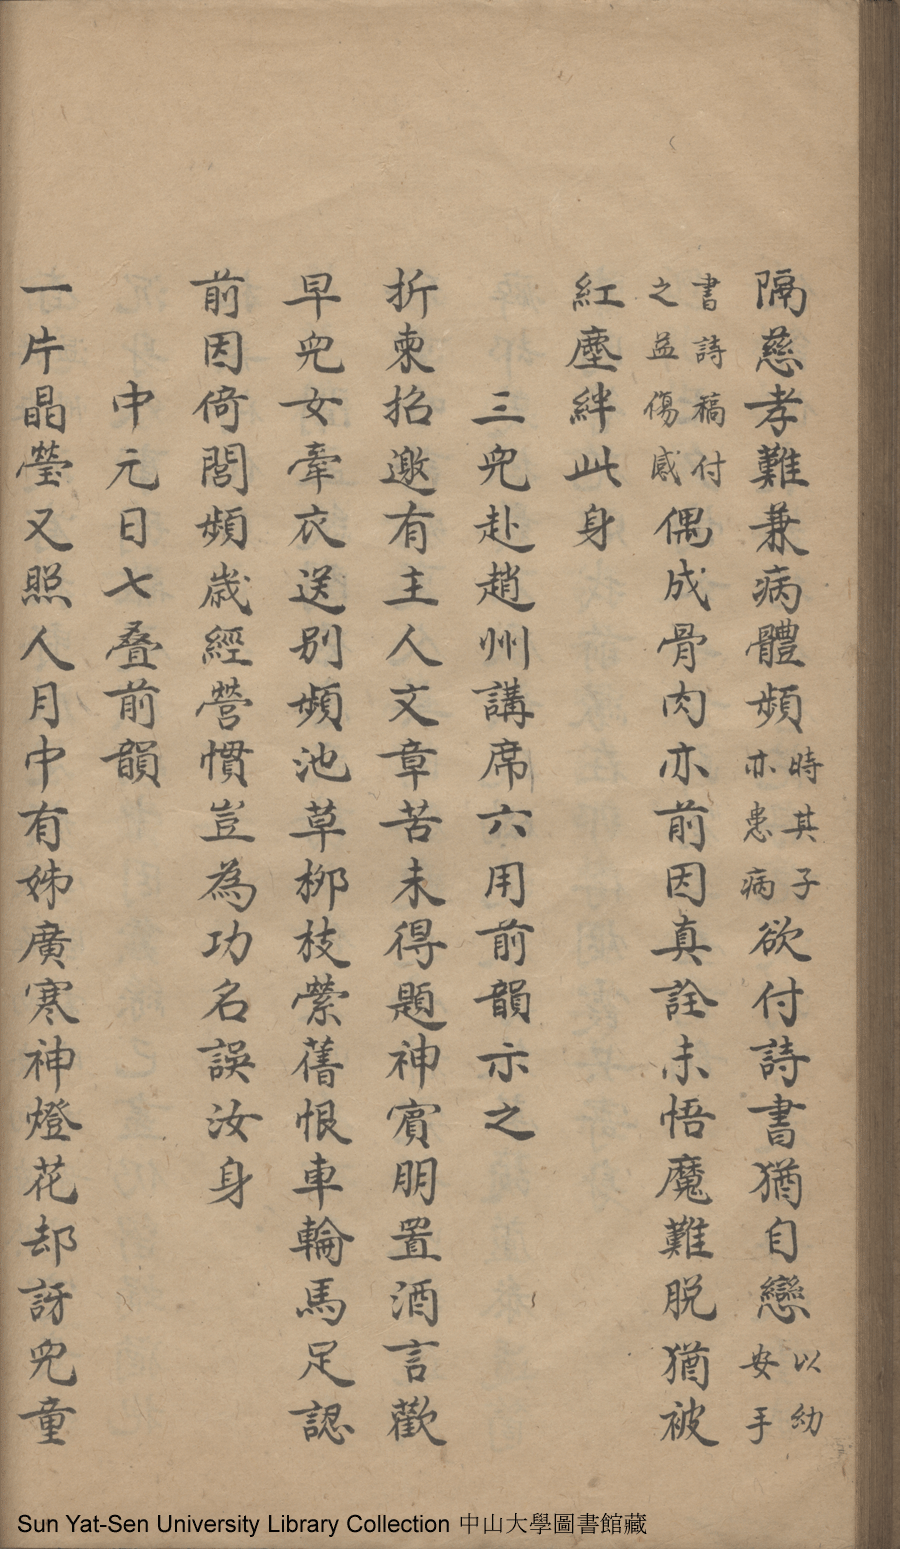 隔慈孝難兼病體頻時其子亦患病欲付詩書猶自戀以幼安手
書詩稿付之益傷感偶成骨肉亦前因真詮未悟魔難脫猶被
紅塵絆此身
三兒赴趙州講席六用前韻示之
折柬招邀有主人文章苦未得題神賓朋置酒言歡
早兒女牽衣送別頻池草柳枝縈舊恨車輪馬足認
前因倚閭頻歲經營慣豈為功名誤汝身
中元日七叠前韻
一片晶瑩又照人月中有姊廣寒神燈花却訝兒童
Sun Yat-Sen University Library Collection 中山大學圖書館藏